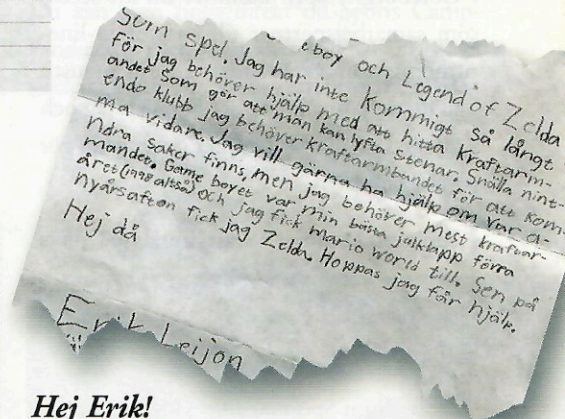 som spel. Jag har inte kommigt så långt
eboy och Legend of Zelda
för jag behöver hjälp med att hitta kraftarm-
andet som gör att man kan lyfta stenar. Snälla nint-
endo klubb jag behöver kraftarmbandet för att kom-
ma vidare. Jag vill gärna ha hjälp om var a-
ndra saker finns, men jag behöver mest kraftar-
mandet. Game boyet var min bästa julklapp förra
året (1998 alltså) och jag fick mario world till. Sen på
nyårsafton fick jag Zelda. Hoppas jag får hjälp.
Hej då
Erik Leijon
Hej Erik!